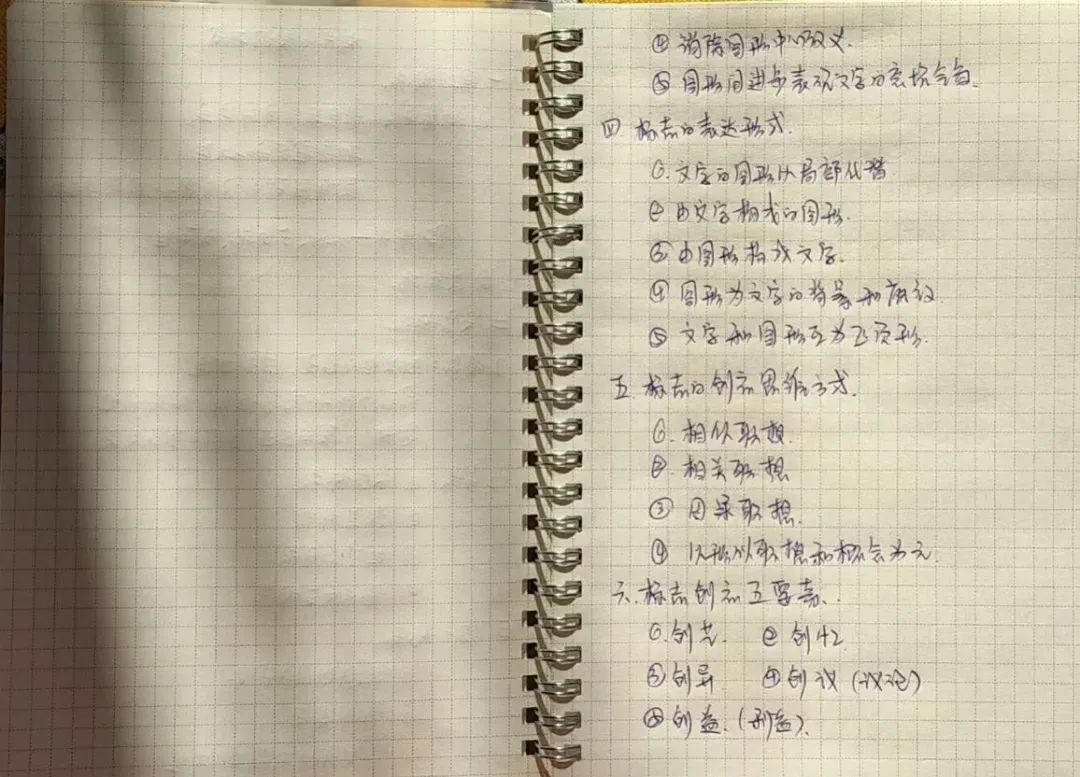 ④ 消除图形中的歧义.
⑤ 图形间进步表现文字的意境
四 标志的表达形式.
①. 文字的图形以局部代替
② 由文字构成的图形.
③ 由图形构成文字.
④ 图形为文字的背景和
⑤ 文字和图形互为正负形.
五 标志的创意思维方式.
①. 相似联想.
② 相关联想
③ 因果联想.
④ 联想和概念为元.
六. 标志创意五要素.
①. 创艺. ② 创
③ 创异 ④ 创议 (议论)
⑤ 创益. (利益).